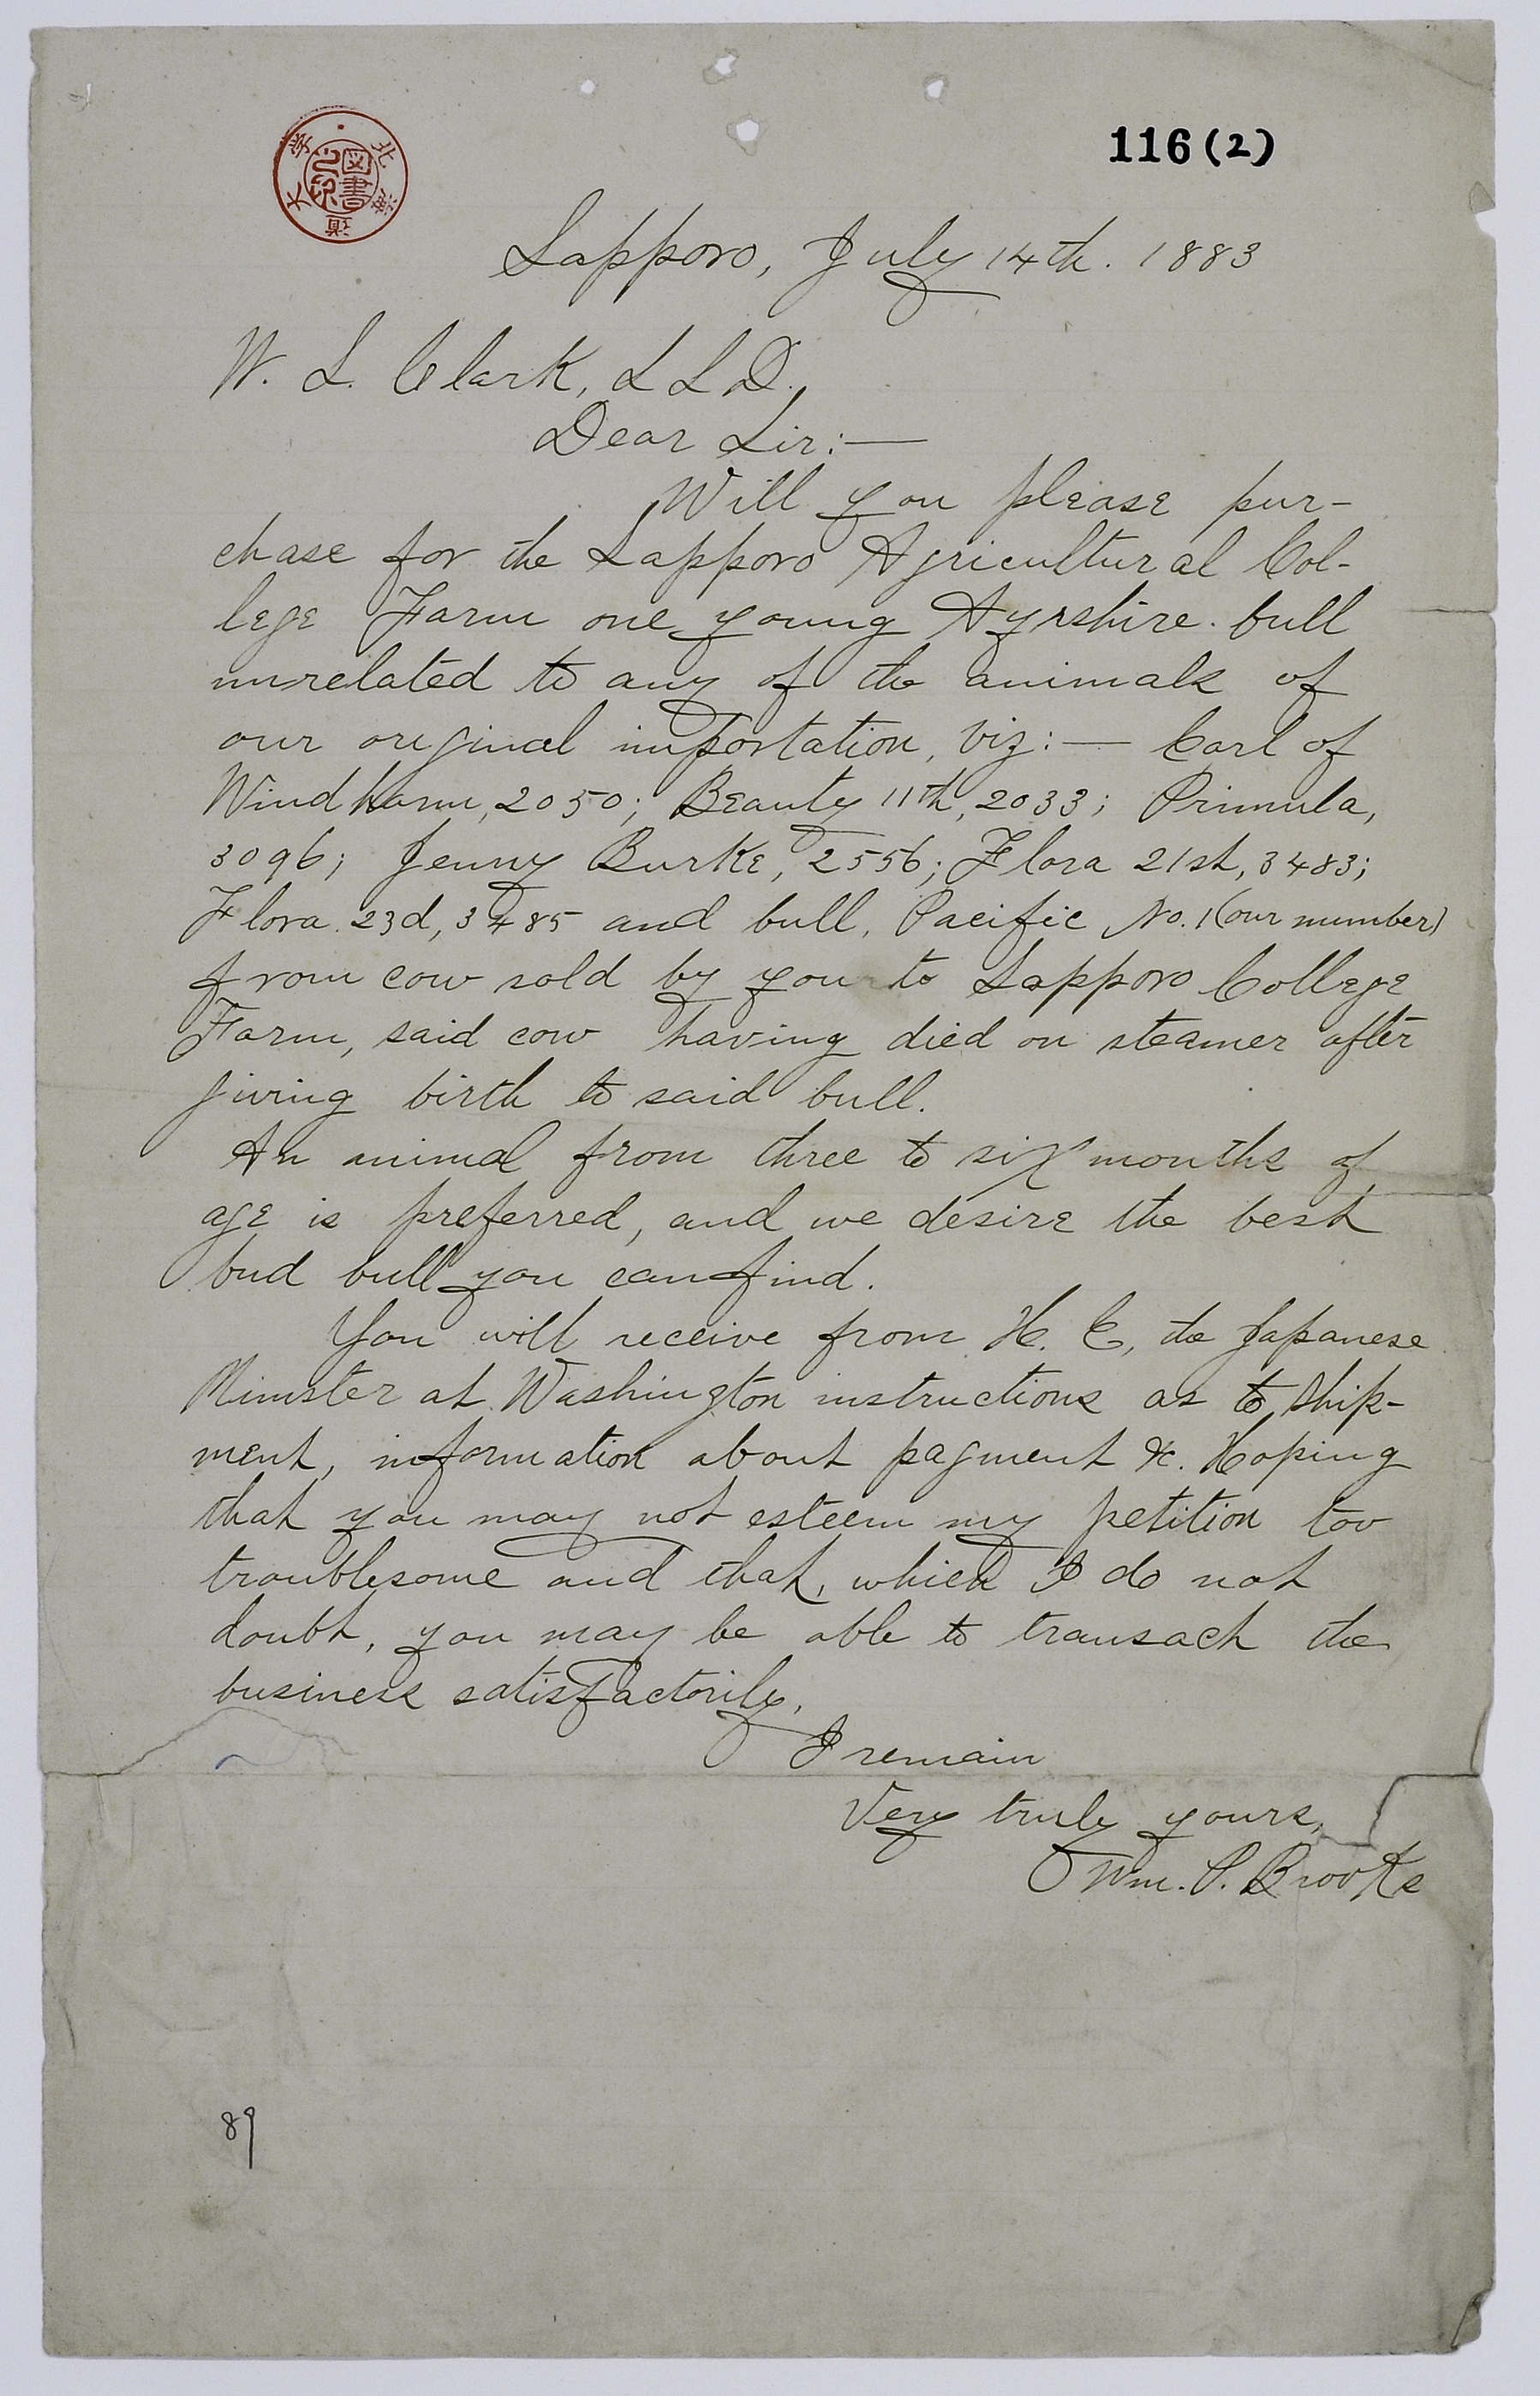 116(2)
北海道大学
図書之印
Sapporo, July 14th. 1883
W. S. Clark, LLD.,
Dear Sir:—
Will you please pur-
chase for the Sapporo Agricultural Col-
lege Farm one young Ayrshire bull
unrelated to any of the animals of
our original importation, viz:— Earl of
Windham, 2050; Beauty 11th, 2033; Primula,
3096; Jenny Burke, 2556; Flora 21st, 3483;
Flora 23d, 3485 and bull, Pacific No. 1 (our number)
from cow sold by you to Sapporo College
Farm, said cow having died on steamer after
giving birth to said bull.
An animal from three to six months of
age is preferred, and we desire the best
bred bull you can find.
You will receive from H. E, the Japanese
Minister at Washington instructions as to ship-
ment, information about payment &c. Hoping
that you may not esteem my petition too
troublesome and that, which I do not
doubt, you may be able to transact the
business satisfactorily,
I remain
Very truly yours,
Wm. P. Brooks
89